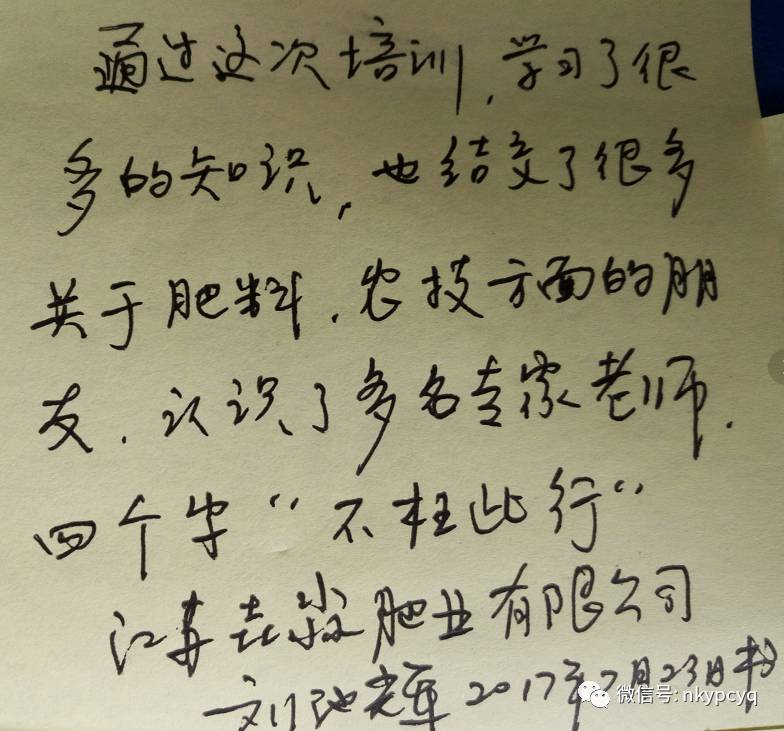 通过这次培训，学习了很
多的知识，也结交了很多
关于肥料，农技方面的朋
友，认识了多名专家老师．
四个字“不枉此行“
江苏垚淼肥业有限公司
刘 辉 2017年7月23日
微信号: nkypcyq